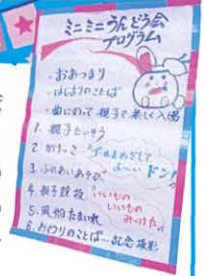 ミニミニうんどう会
プログラム
・おあつまり
・はじまりのことば
・曲にのって 親子で楽しく入場
1. 親子たいそう
2. かけっこ "ゴールをめざして
よーい ドン!
3. ふれあいあそび
4. 親子競技 いいもの
いいもの
みつけた
5. 風船たまいれ
6. おわりのことば…記念撮影